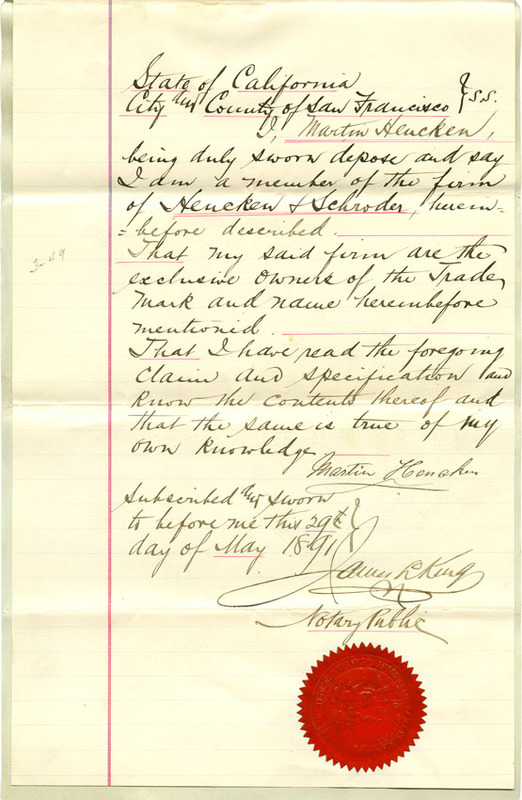 State of California
City and County of San Francisco } S.S.
I, Martin Hencken,
being duly sworn depose and say
I am a member of the firm
of Hencken & Schroder, herein-
=before described.
That my said firm are the
exclusive Owners of the Trade
Mark and name hereinbefore
mentioned.
That I have read the foregoing
Claim and specification and
know the contents thereof and
that the same is true of my
own knowledge
Martin Hencken
Subscribed and sworn
to before me this 29th }
day of May 1891
James L. King
Notary Public